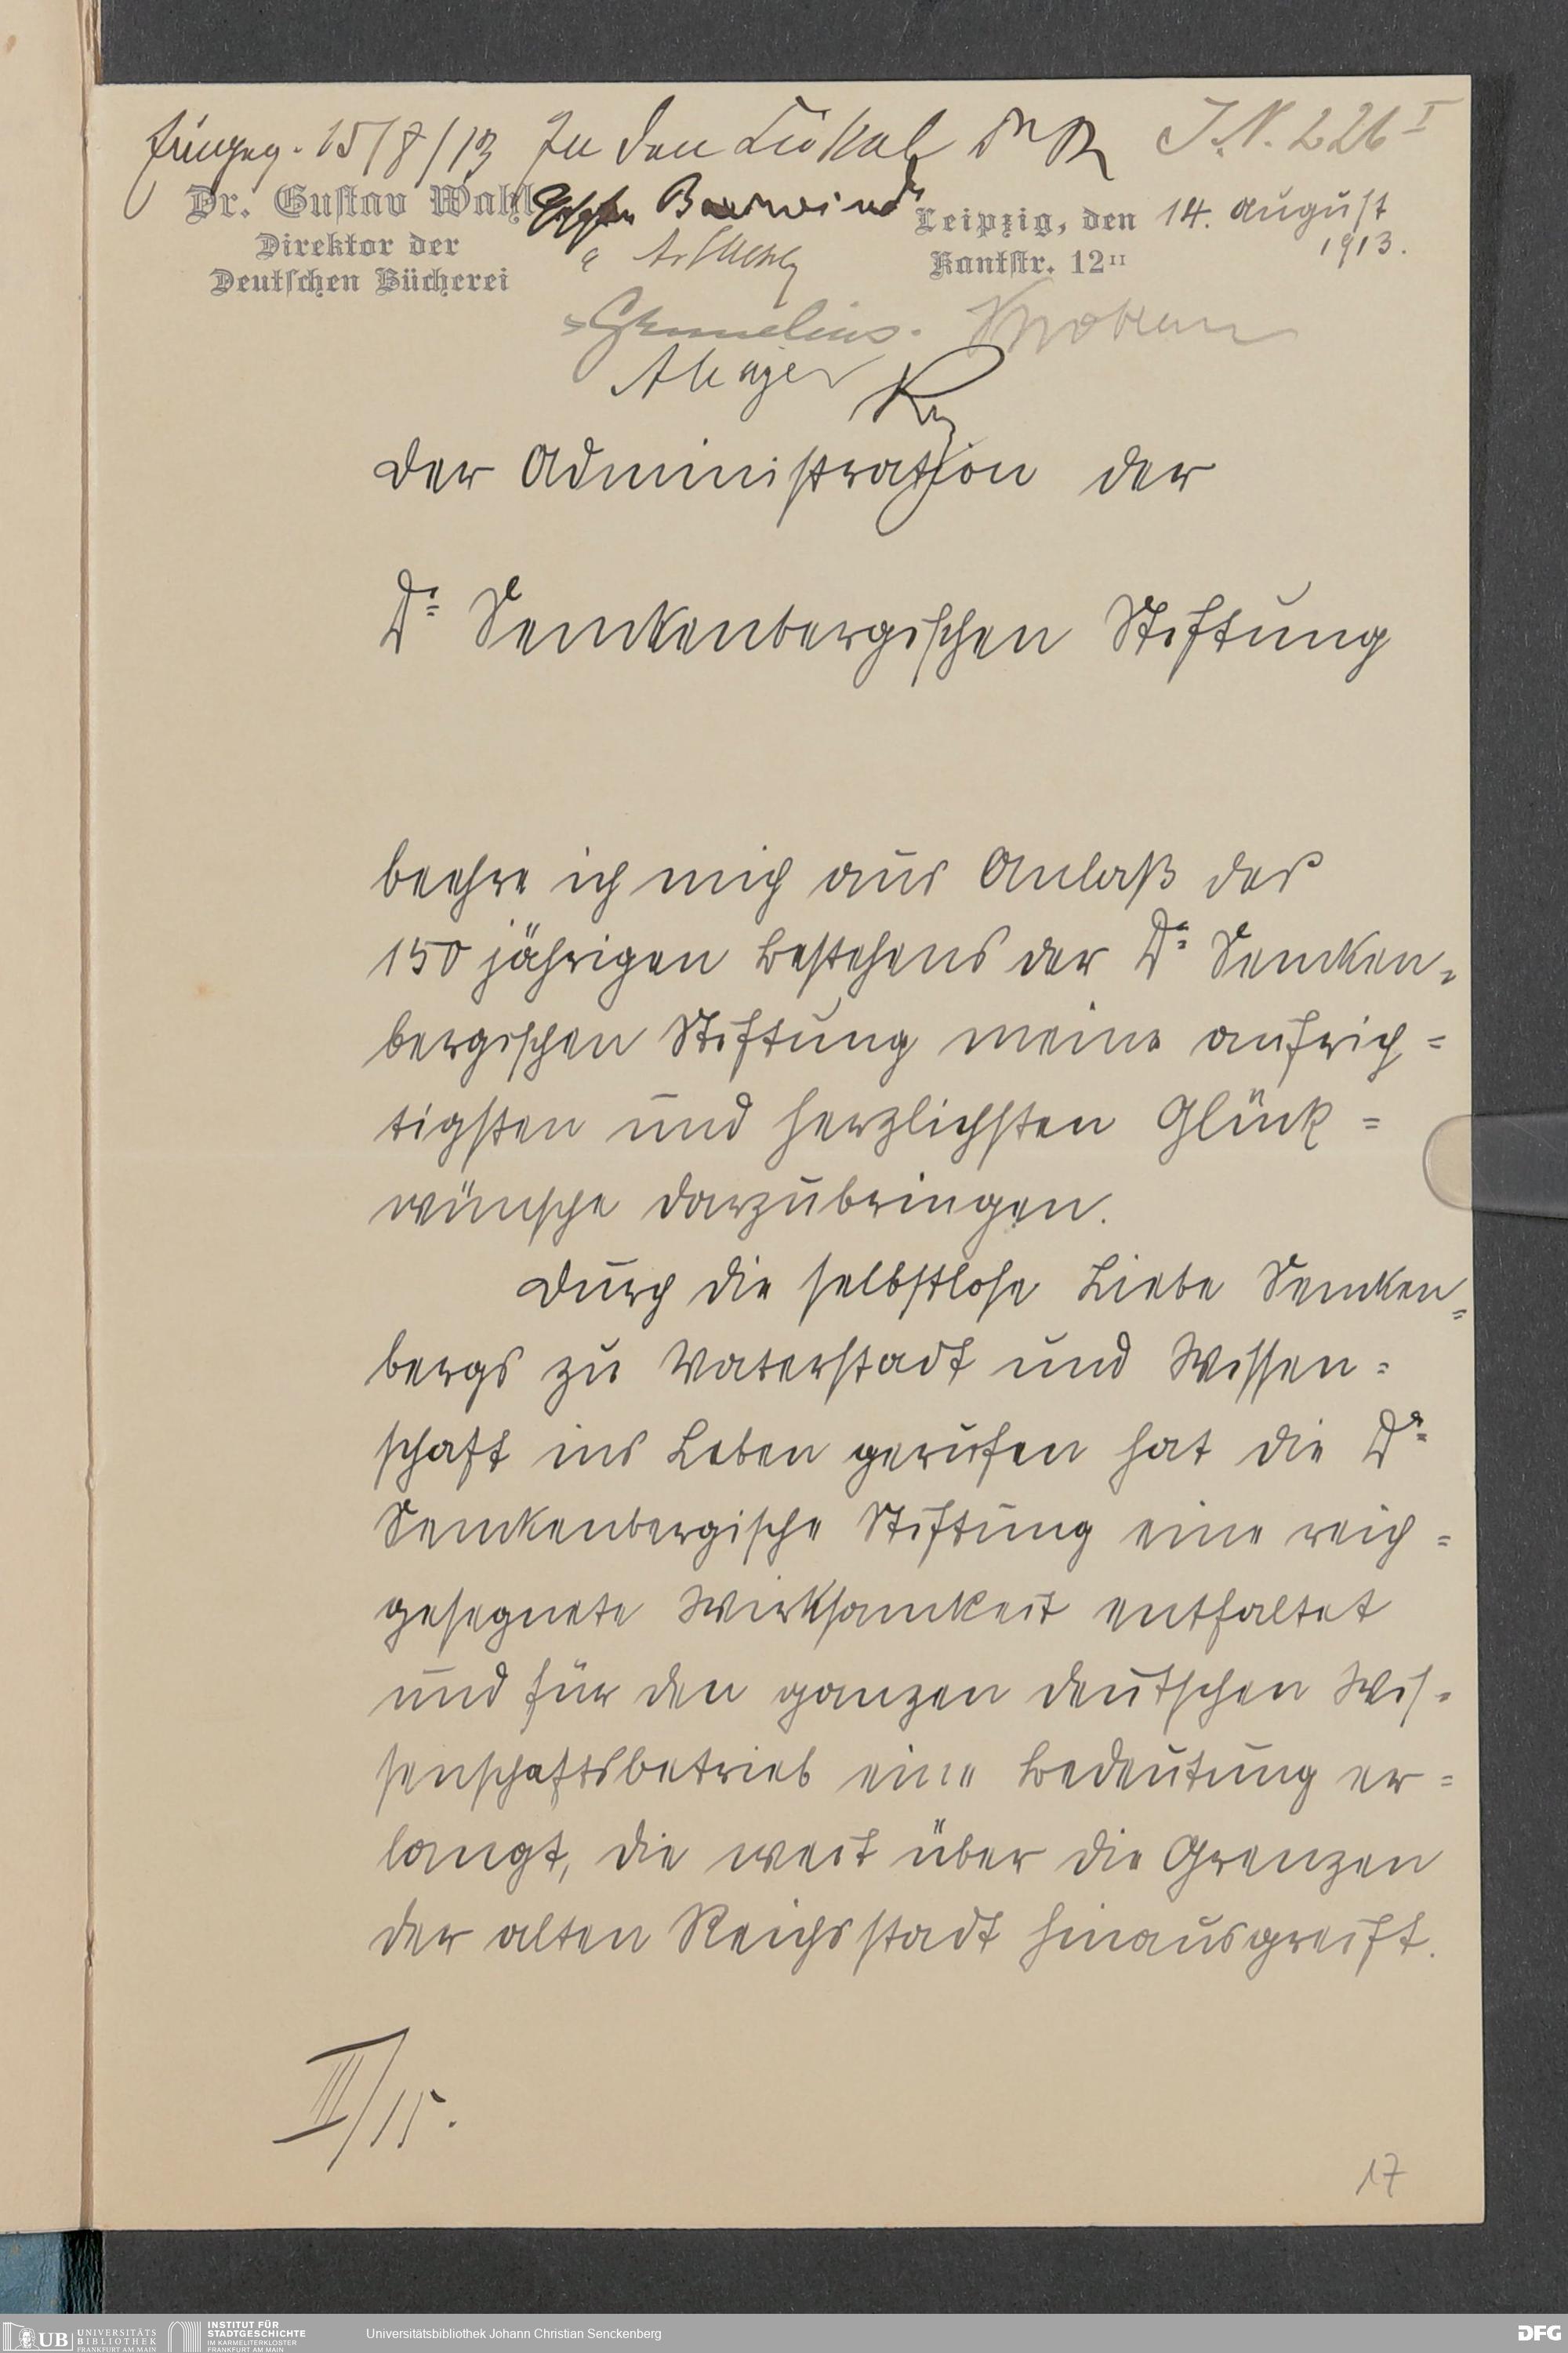 Eingeg. 15/8/13 Zu den
J. N. 226 I
Dr. Gustav Wahl
Direktor der
Deutschen Bücherei
Leipzig, den 14. August
1913.
Kantstr. 12 II
Der Administration der
Dr. Senckenbergischen Stiftung
beehre ich mich aus Anlaß des
150 jährigen Bestehens der Dr. Sencken-
bergischen Stiftung meine aufrich-
tigsten und herzlichsten Glück-
wünsche darzubringen.
Durch die selbstlose Liebe Sencken-
bergs zu Vaterstadt und Wissen-
schaft ins Leben gerufen hat die Dr.
Senckenbergische Stiftung eine reich-
gesegnete Wirksamkeit entfaltet
und für den ganzen deutschen Wis-
senschaftsbetrieb eine Bedeutung er-
langt, die weit über die Grenzen
der alten Reichsstadt hinausgreift.
III/15.
17
UB UNIVERSITÄTS BIBLIOTHEK FRANKFURT AM MAIN
INSTITUT FÜR STADTGESCHICHTE IM KARMELITERKLOSTER FRANKFURT AM MAIN
Universitätsbibliothek Johann Christian Senckenberg
DFG